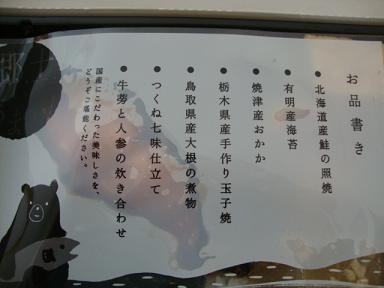 お品書き
●北海道産鮭の照焼
●有明産海苔
●焼津産おかか
●栃木県産手作り玉子焼
●鳥取県産大根の煮物
●つくね七味仕立て
●牛蒡と人参の炊き合わせ
国産にこだわった美味しさを、
どうぞご堪能ください。